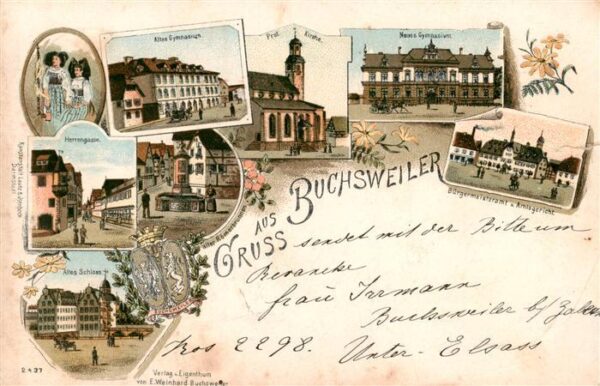 Altes Gymnasium.
Prot. Kirche.
Neues Gymnasium.
Herrengasse.
Bürgermeisteramt u. Amtsgericht.
GRUSS AUS BUCHSWEILER
Altes Schloss
sendet mit der Bitte um
Revanche
Frau Irrmann
Buchsweiler b/ Zabern
Kos 2298. Unter-Elsass
2427
Verlag u. Eigenthum
von E. Weinhard Buchsweiler